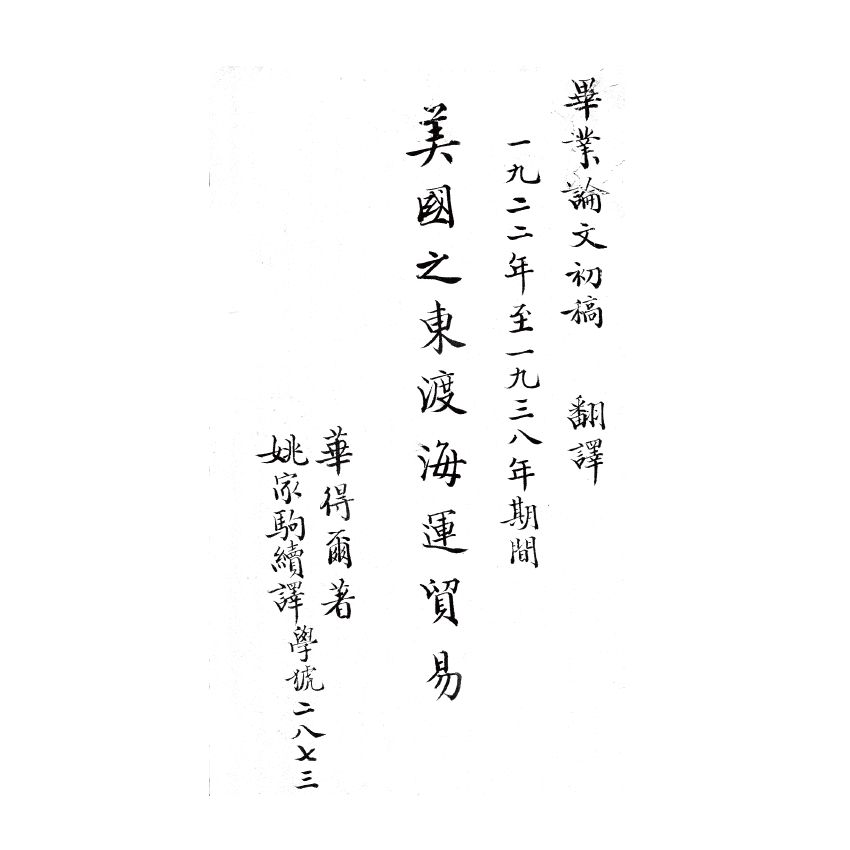 畢業論文初稿 翻譯
一九二二年至一九三八年期間
美國之東渡海運貿易
華得爾著
姚家駒續譯學號二八七三